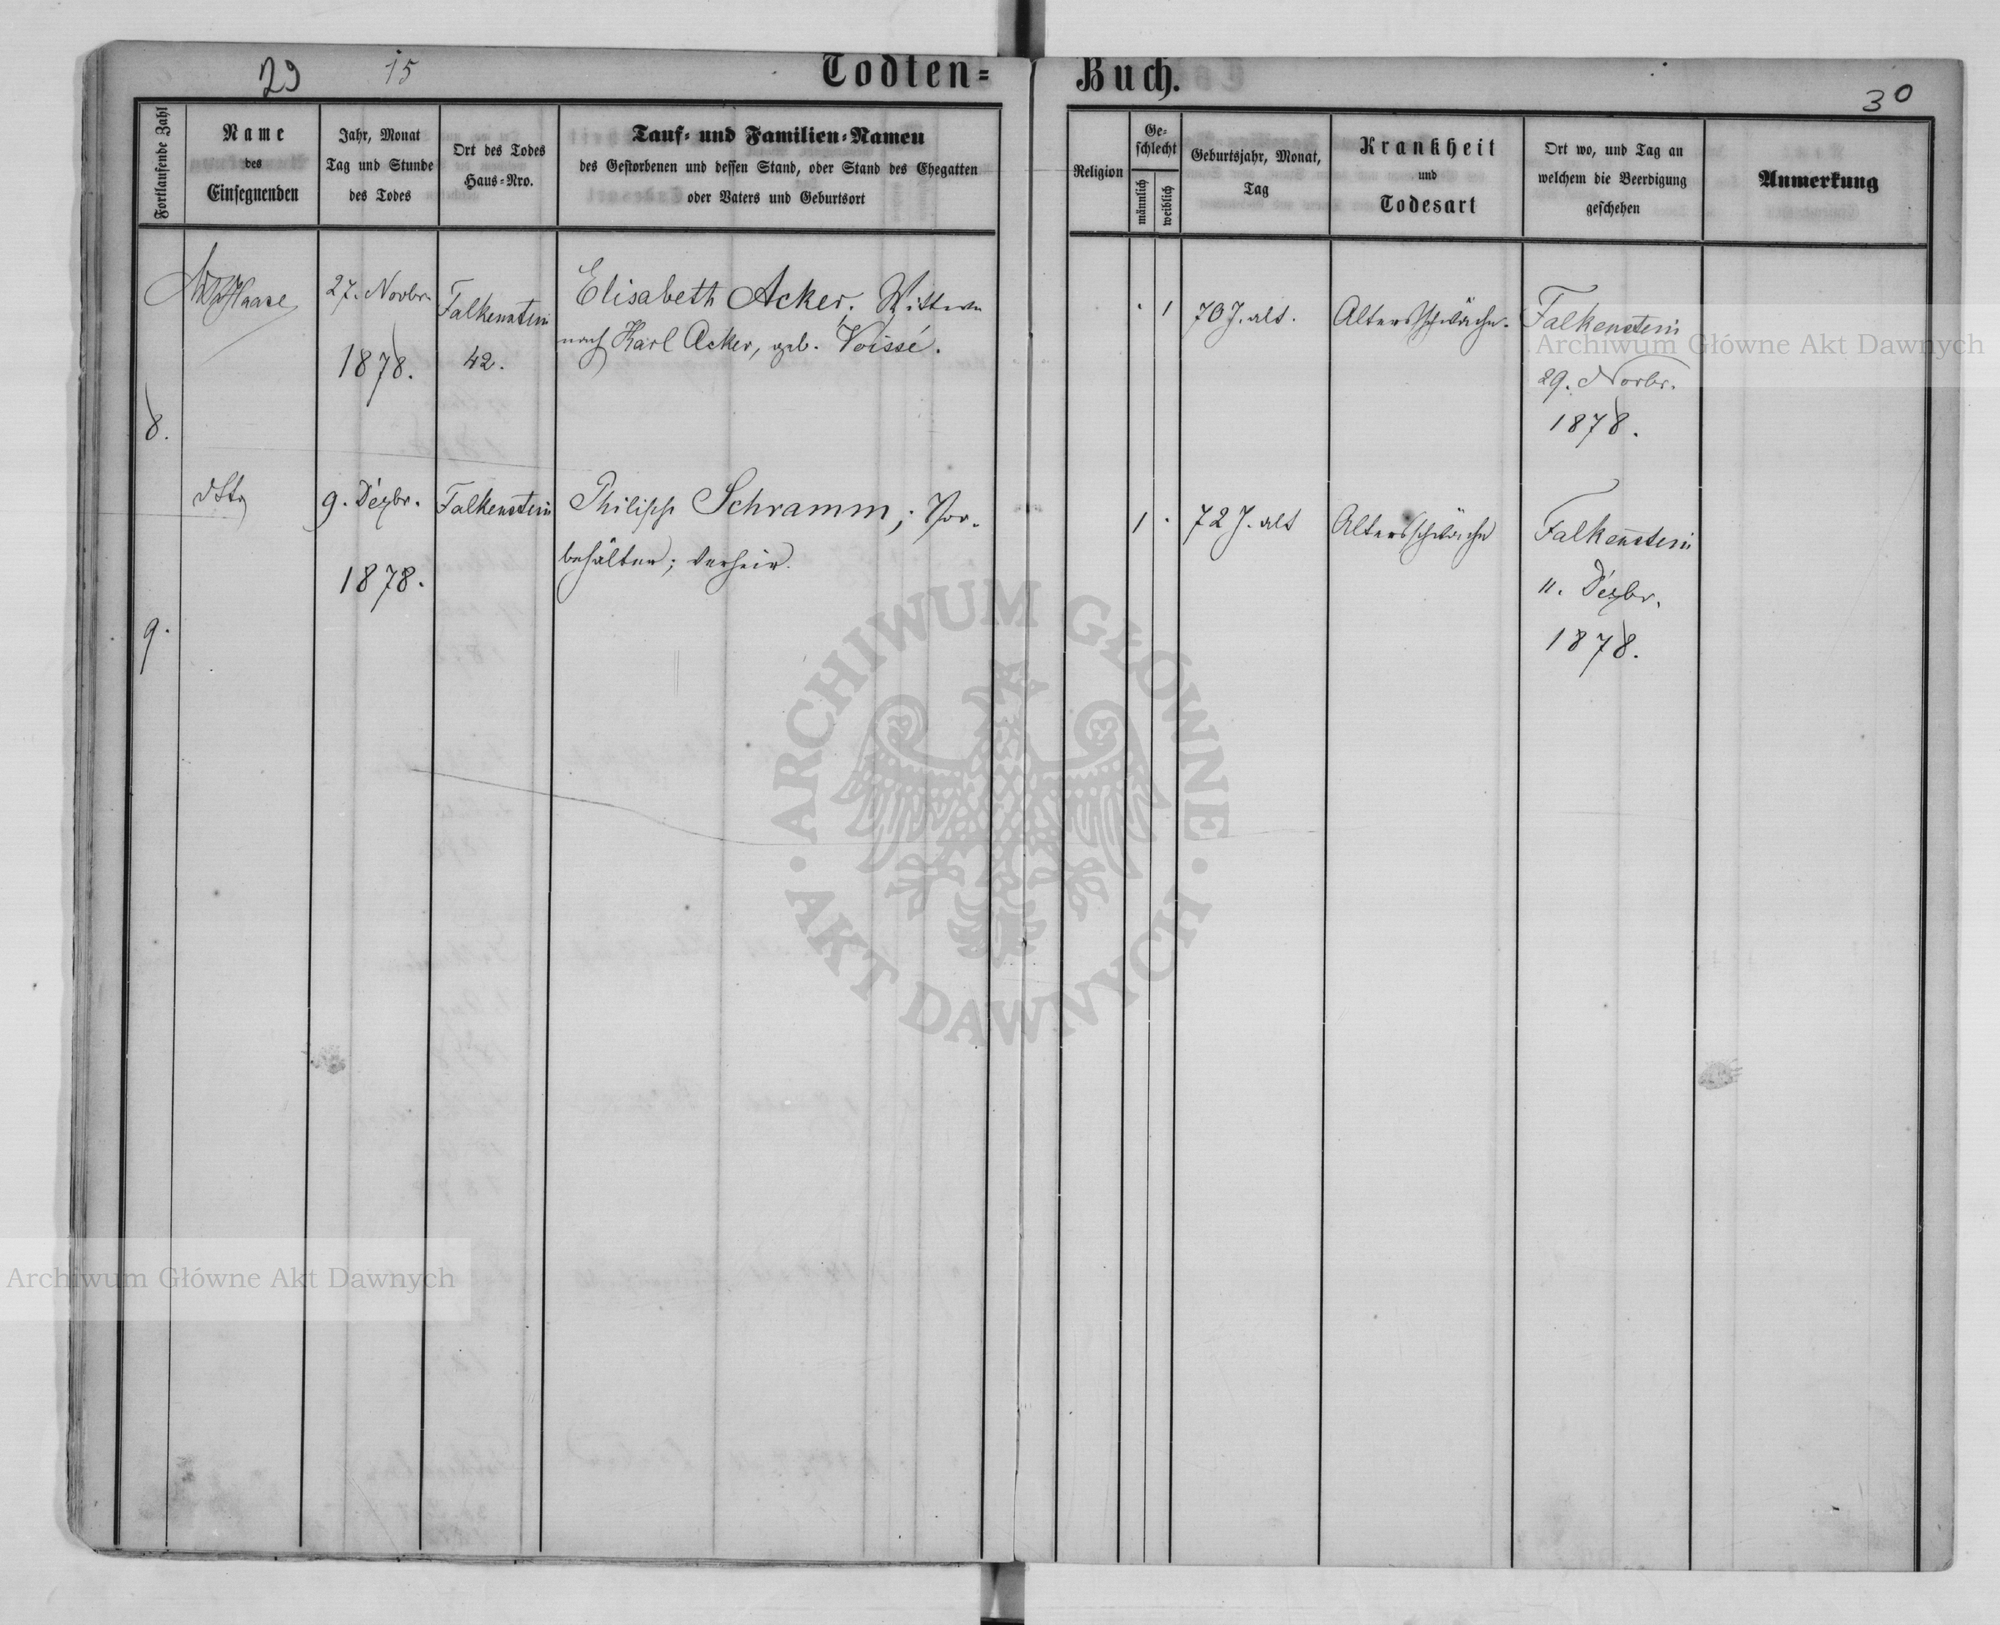 29
15
Todten-
Fortlaufende Zahl
Name
des
Einsegnenden
Jahr, Monat
Tag und Stunde
des Todes
Ort des Todes
Haus-Nro.
Tauf- und Familien-Namen
des Gestorbenen und dessen Stand, oder Stand des Ehegatten
oder Vaters und Geburtsort
8.
Haase
27. Novbr.
1878.
Falkenstein
42.
Elisabeth Acker. Wittwe
nach Karl Acker, geb. Voissé.
9.
dtto
9. Dezbr.
1878.
Falkenstein
Philipp Schramm; Vor-
behälter; verheir.
Buch.
30
Religion
Ge-
schlecht
männlich
weiblich
Geburtsjahr, Monat,
Tag
Krankheit
und
Todesart
Ort wo, und Tag an
welchem die Beerdigung
geschehen
Anmerkung
. 1
70 J. alt.
Altersschwäche.
Falkenstein
29. Novbr.
1878.
1 .
72 J. alt
Altersschwäche
Falkenstein
11. Dezbr.
1878.
Archiwum Główne Akt Dawnych
ARCHIWUM GŁÓWNE · AKT DAWNYCH ·
Archiwum Główne Akt Dawnych